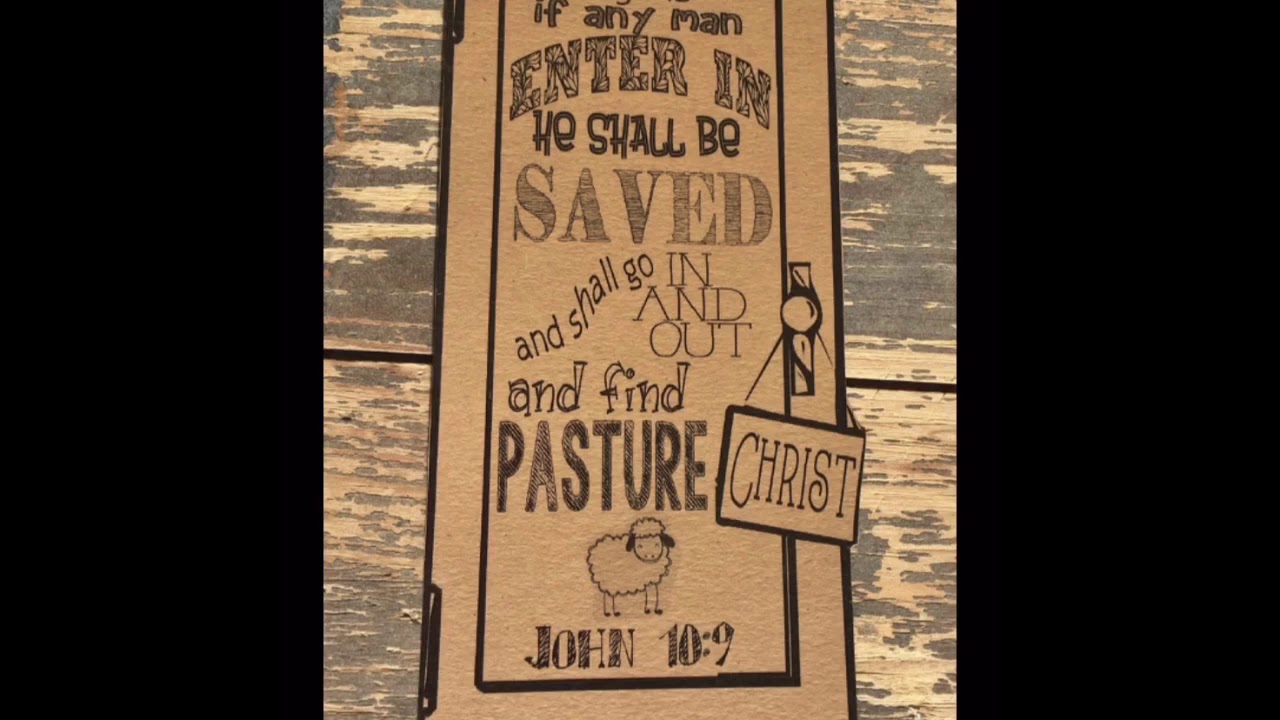 if any man
ENTER IN
HE SHALL BE
SAVED
and shall go IN
AND
OUT
and find
PASTURE
CHRIST
JOHN 10:9